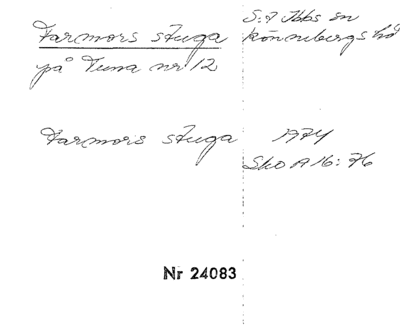 Farmors stuga
på Tuna nr 12
S:t Ibbs sn
Rönnebergs hd
Farmors stuga
1974
Sko A 16: 76
Nr 24083